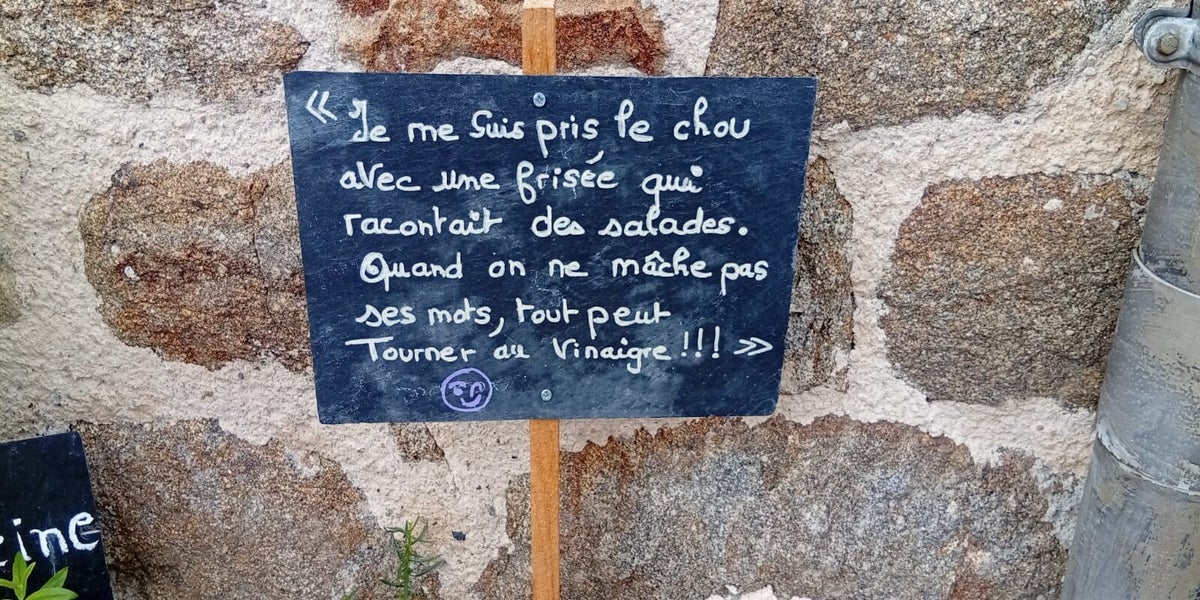 « Je me suis pris le chou
avec une frisée qui
racontait des salades.
Quand on ne mâche pas
ses mots, tout peut
Tourner au Vinaigre !!! »